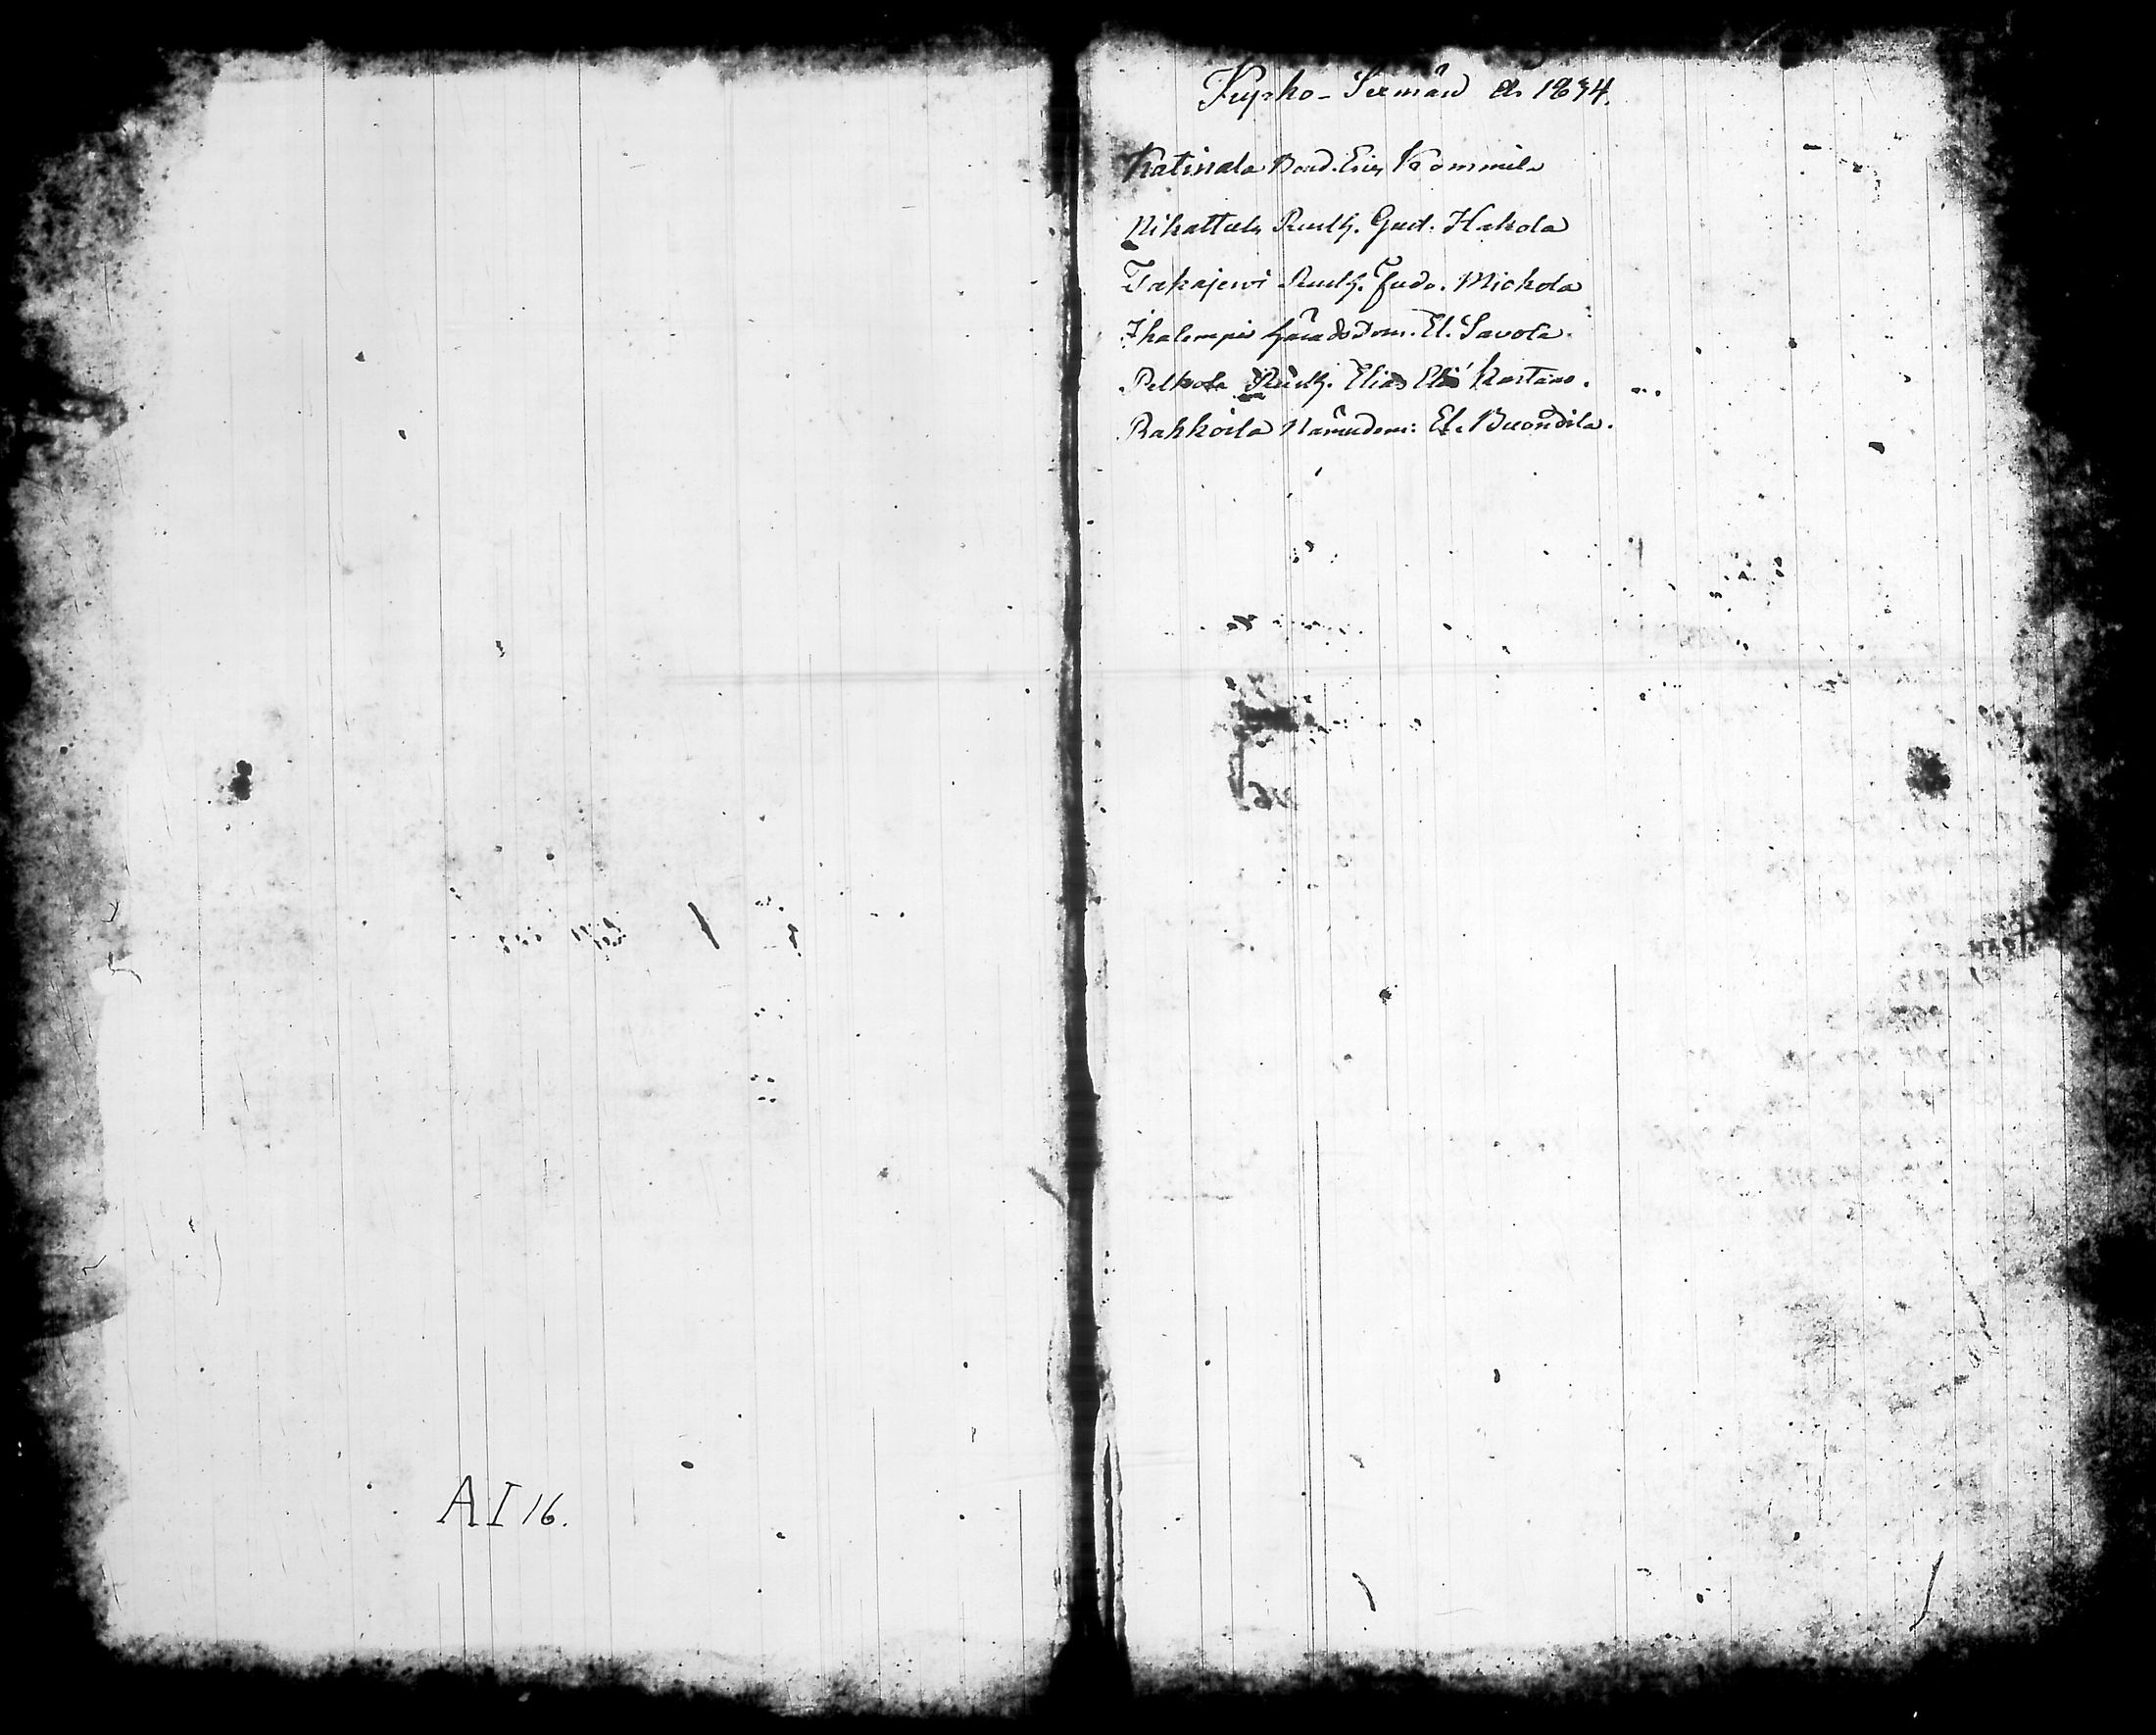 AI 16.
Kyrko-Sexmän år 1834.
Katinala Bond. Eric Kommila
Nihattula Rusth. Gust. Hakola
Takajerwi Rusth. Fredr. Mickola
Ihalempi Häradsdom. El. Savola.
Pelkola Rusth. Elias Kartano.
Rahkoila Nämdem: El.